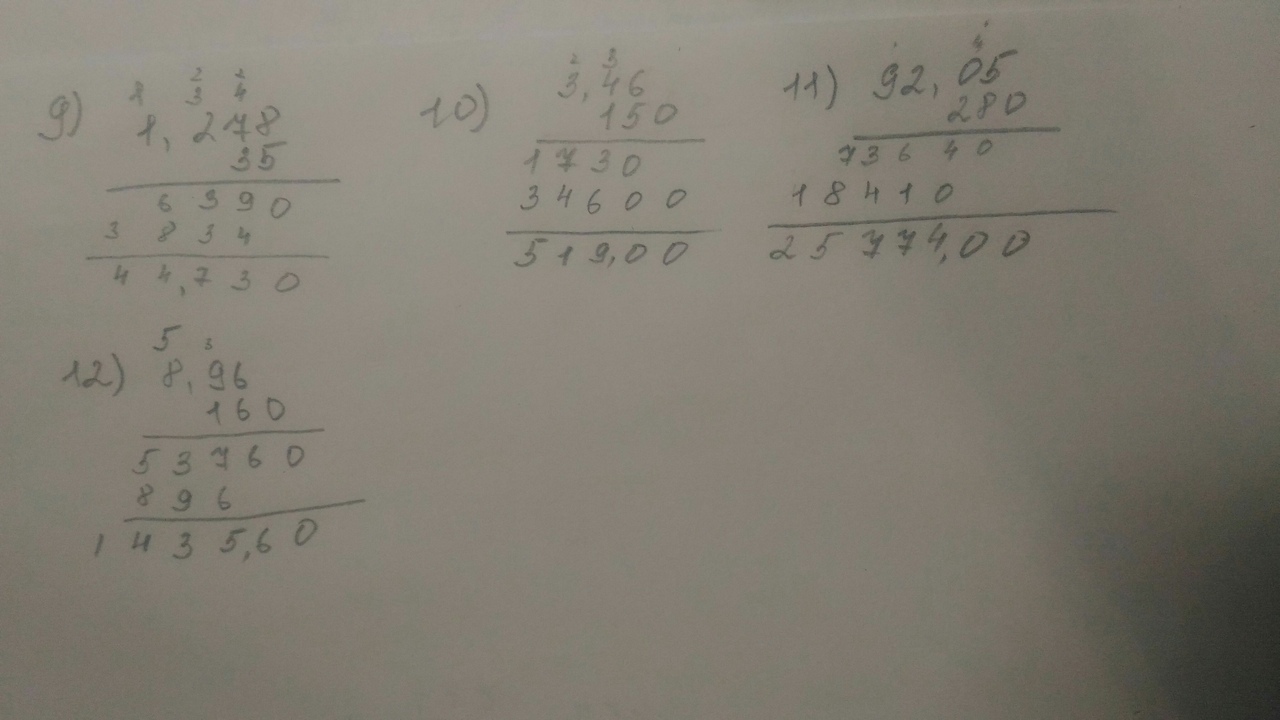 9) 1 2 2
3 4
1,278
35
6390
3834
44,730
10) 2 3
3,46
150
1730
34600
519,00
11) 1 4
92,05
280
73640
18410
25774,00
12) 5 3
8,96
160
53760
896
1435,60